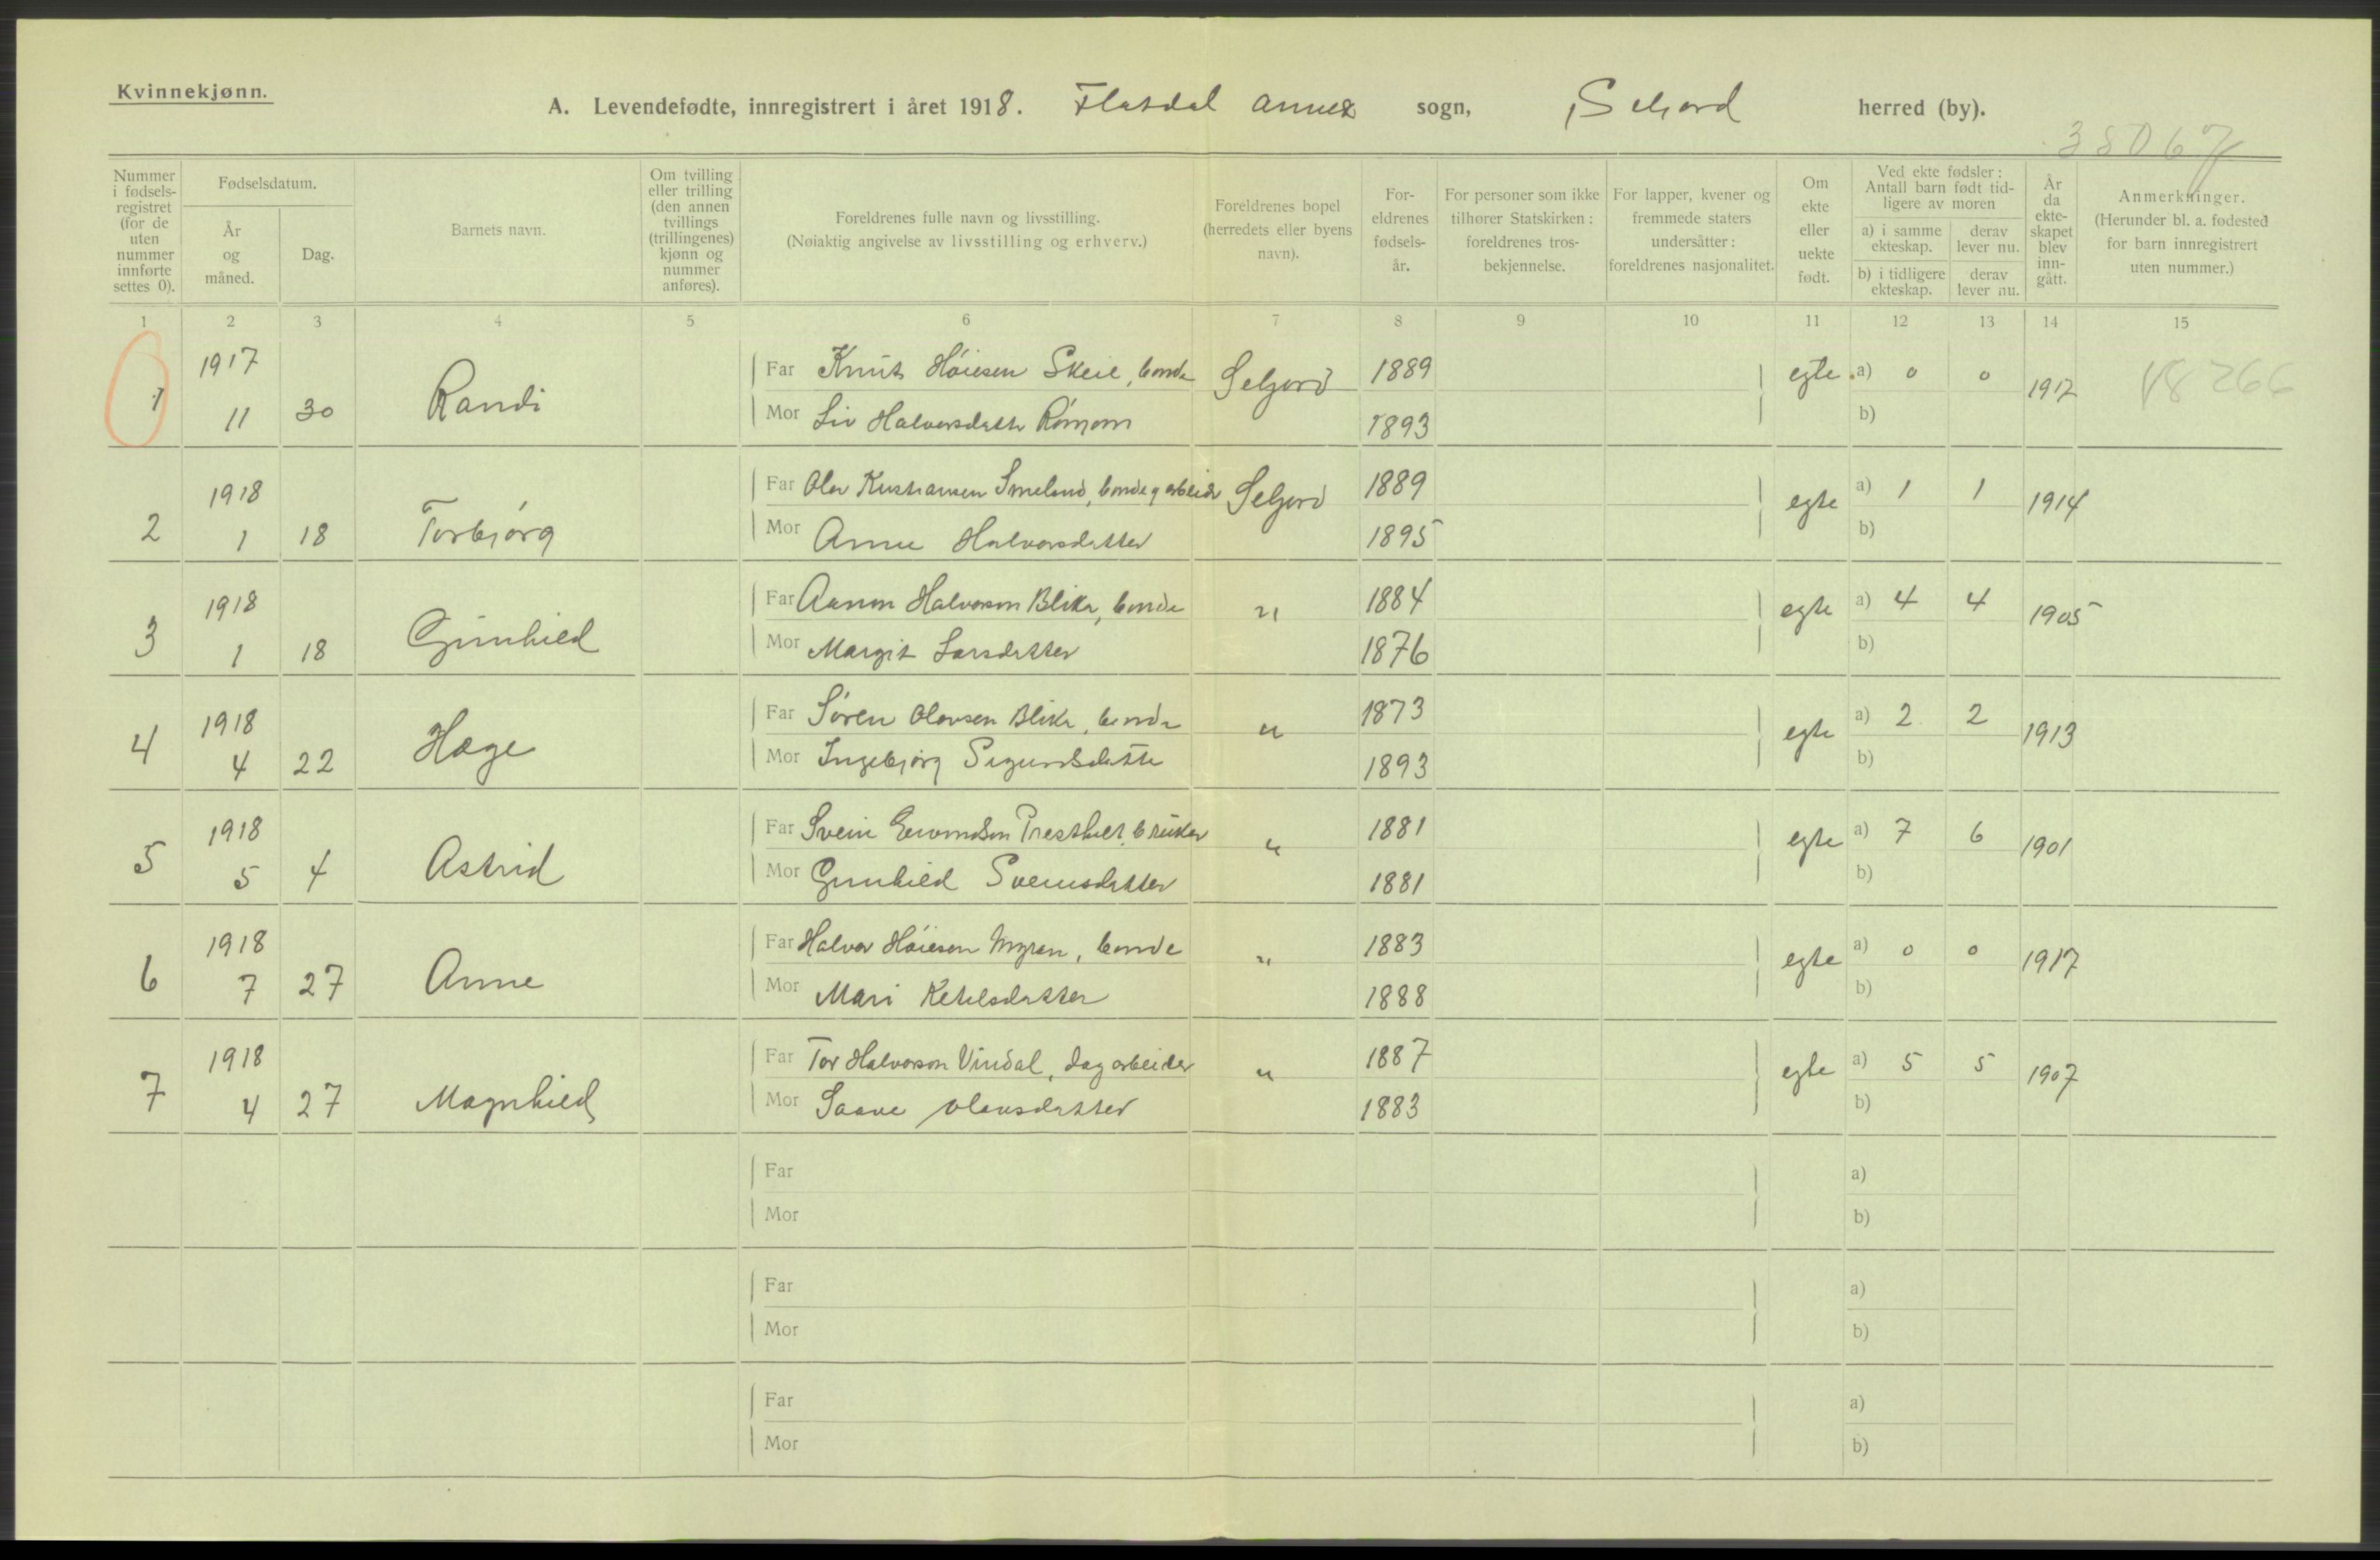 Kvinnekjønn.
A. Levendefødte, innregistrert i året 1918. Flatdal annex sogn, Seljord herred (by).
38067
Nummer i fødsels-registret (for de uten nummer innførte settes 0).
Fødselsdatum.
År og måned.
Dag.
Barnets navn.
Om tvilling eller trilling (den annen tvillings (trillingenes) kjønn og nummer anføres).
Foreldrenes fulle navn og livsstilling.
(Nøiaktig angivelse av livsstilling og erhverv.)
Foreldrenes bopel (herredets eller byens navn).
For-eldrenes fødsels-år.
For personer som ikke tilhører Statskirken: foreldrenes tros-bekjennelse.
For lapper, kvener og fremmede staters undersåtter: foreldrenes nasjonalitet.
Om ekte eller uekte født.
Ved ekte fødsler: Antall barn født tid-ligere av moren
a) i samme ekteskap.
derav lever nu.
b) i tidligere ekteskap.
derav lever nu.
År da ekte-skapet blev inn-gått.
Anmerkninger.
(Herunder bl. a. fødested for barn innregistrert uten nummer.)
1 2 3 4 5 6 7 8 9 10 11 12 13 14 15
1 1917 11 30 Randi
Far Knut Høiesen Skeie, bonde Seljord 1889 egte a) 0 0 1917 18266
Mor Liv Halvorsdatter 1893 b)
2 1918 1 18 Torbjørg
Far Olav Kristiansen Smeland, bonde og arbeider Seljord 1889 egte a) 1 1 1914
Mor Anne Halvorsdatter 1895 b)
3 1918 1 18 Gunhild
Far Aanon Halvorson Blika, bonde " 1884 egte a) 4 4 1905
Mor Margit Larsdatter 1876 b)
4 1918 4 22 Hæge
Far Søren Olavsen Blika, bonde " 1873 egte a) 2 2 1913
Mor Ingebjørg Sigurdsdatter 1893 b)
5 1918 5 4 Astrid
Far Svein bruker " 1881 egte a) 7 6 1901
Mor Gunhild Sveinsdatter 1881 b)
6 1918 7 27 Anne
Far Halvor Høiesen Myran, bonde " 1883 egte a) 0 0 1917
Mor Mari Ketilsdatter 1888 b)
7 1918 4 27 Magnhild
Far Tor Halvorson Vindal, dagarbeider " 1887 egte a) 5 5 1907
Mor Saave Olavsdatter 1883 b)
Far a)
Mor b)
Far a)
Mor b)
Far a)
Mor b)